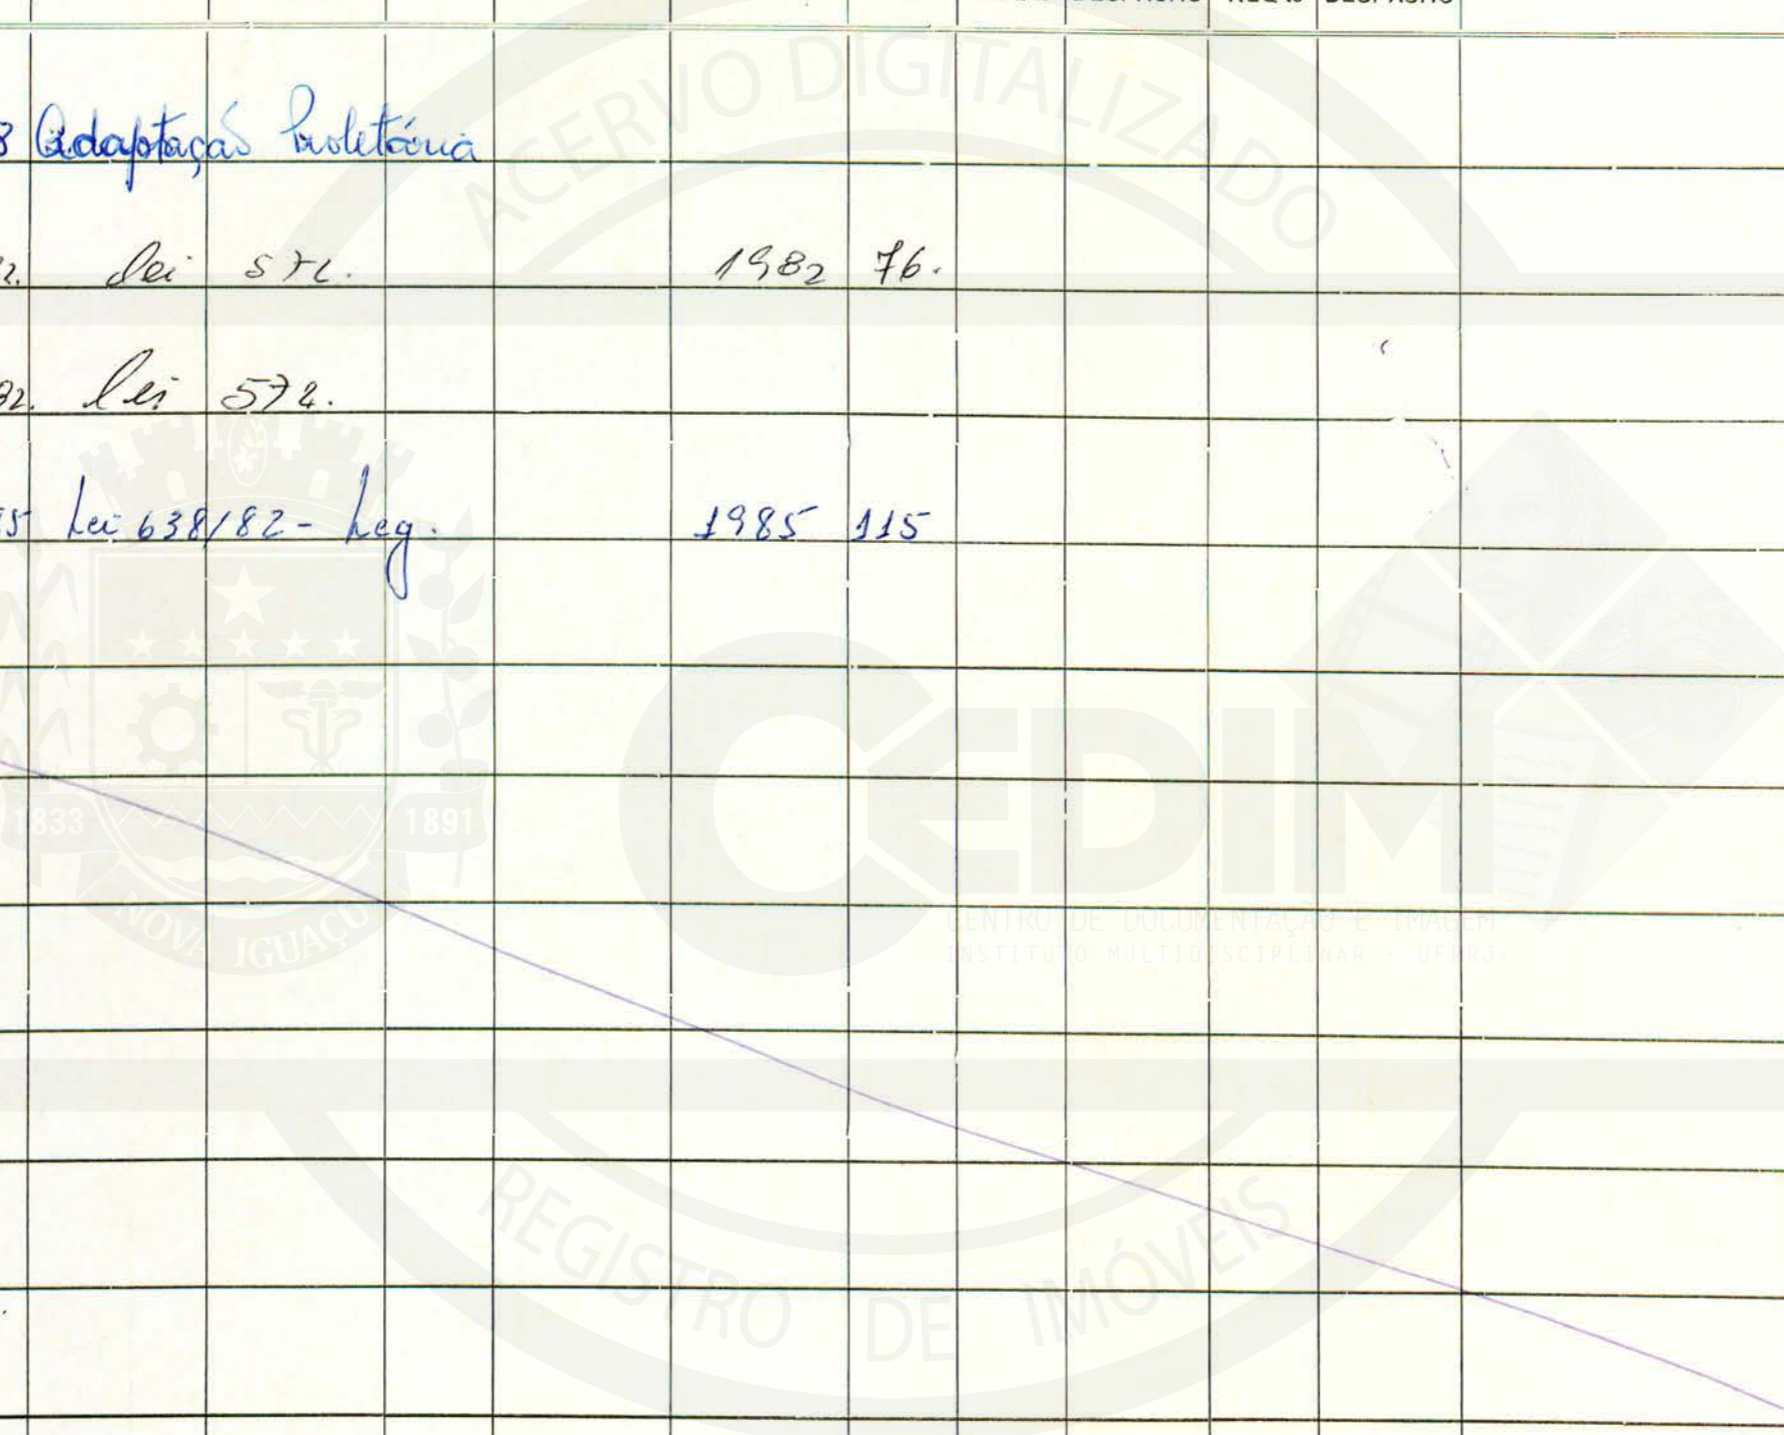 3 Adaptação Proletária
2. Lei 572. 1982 76.
82. Lei 572.
5 Lei 638/82 - Leg. 1985 115
ACERVO DIGITALIZADO
1833 1891
NOVA IGUAÇU
CEDIM
CENTRO DE DOCUMENTAÇÃO E IMAGEM
INSTITUTO MULTIDISCIPLINAR - UFRRJ
REGISTRO DE IMÓVEIS